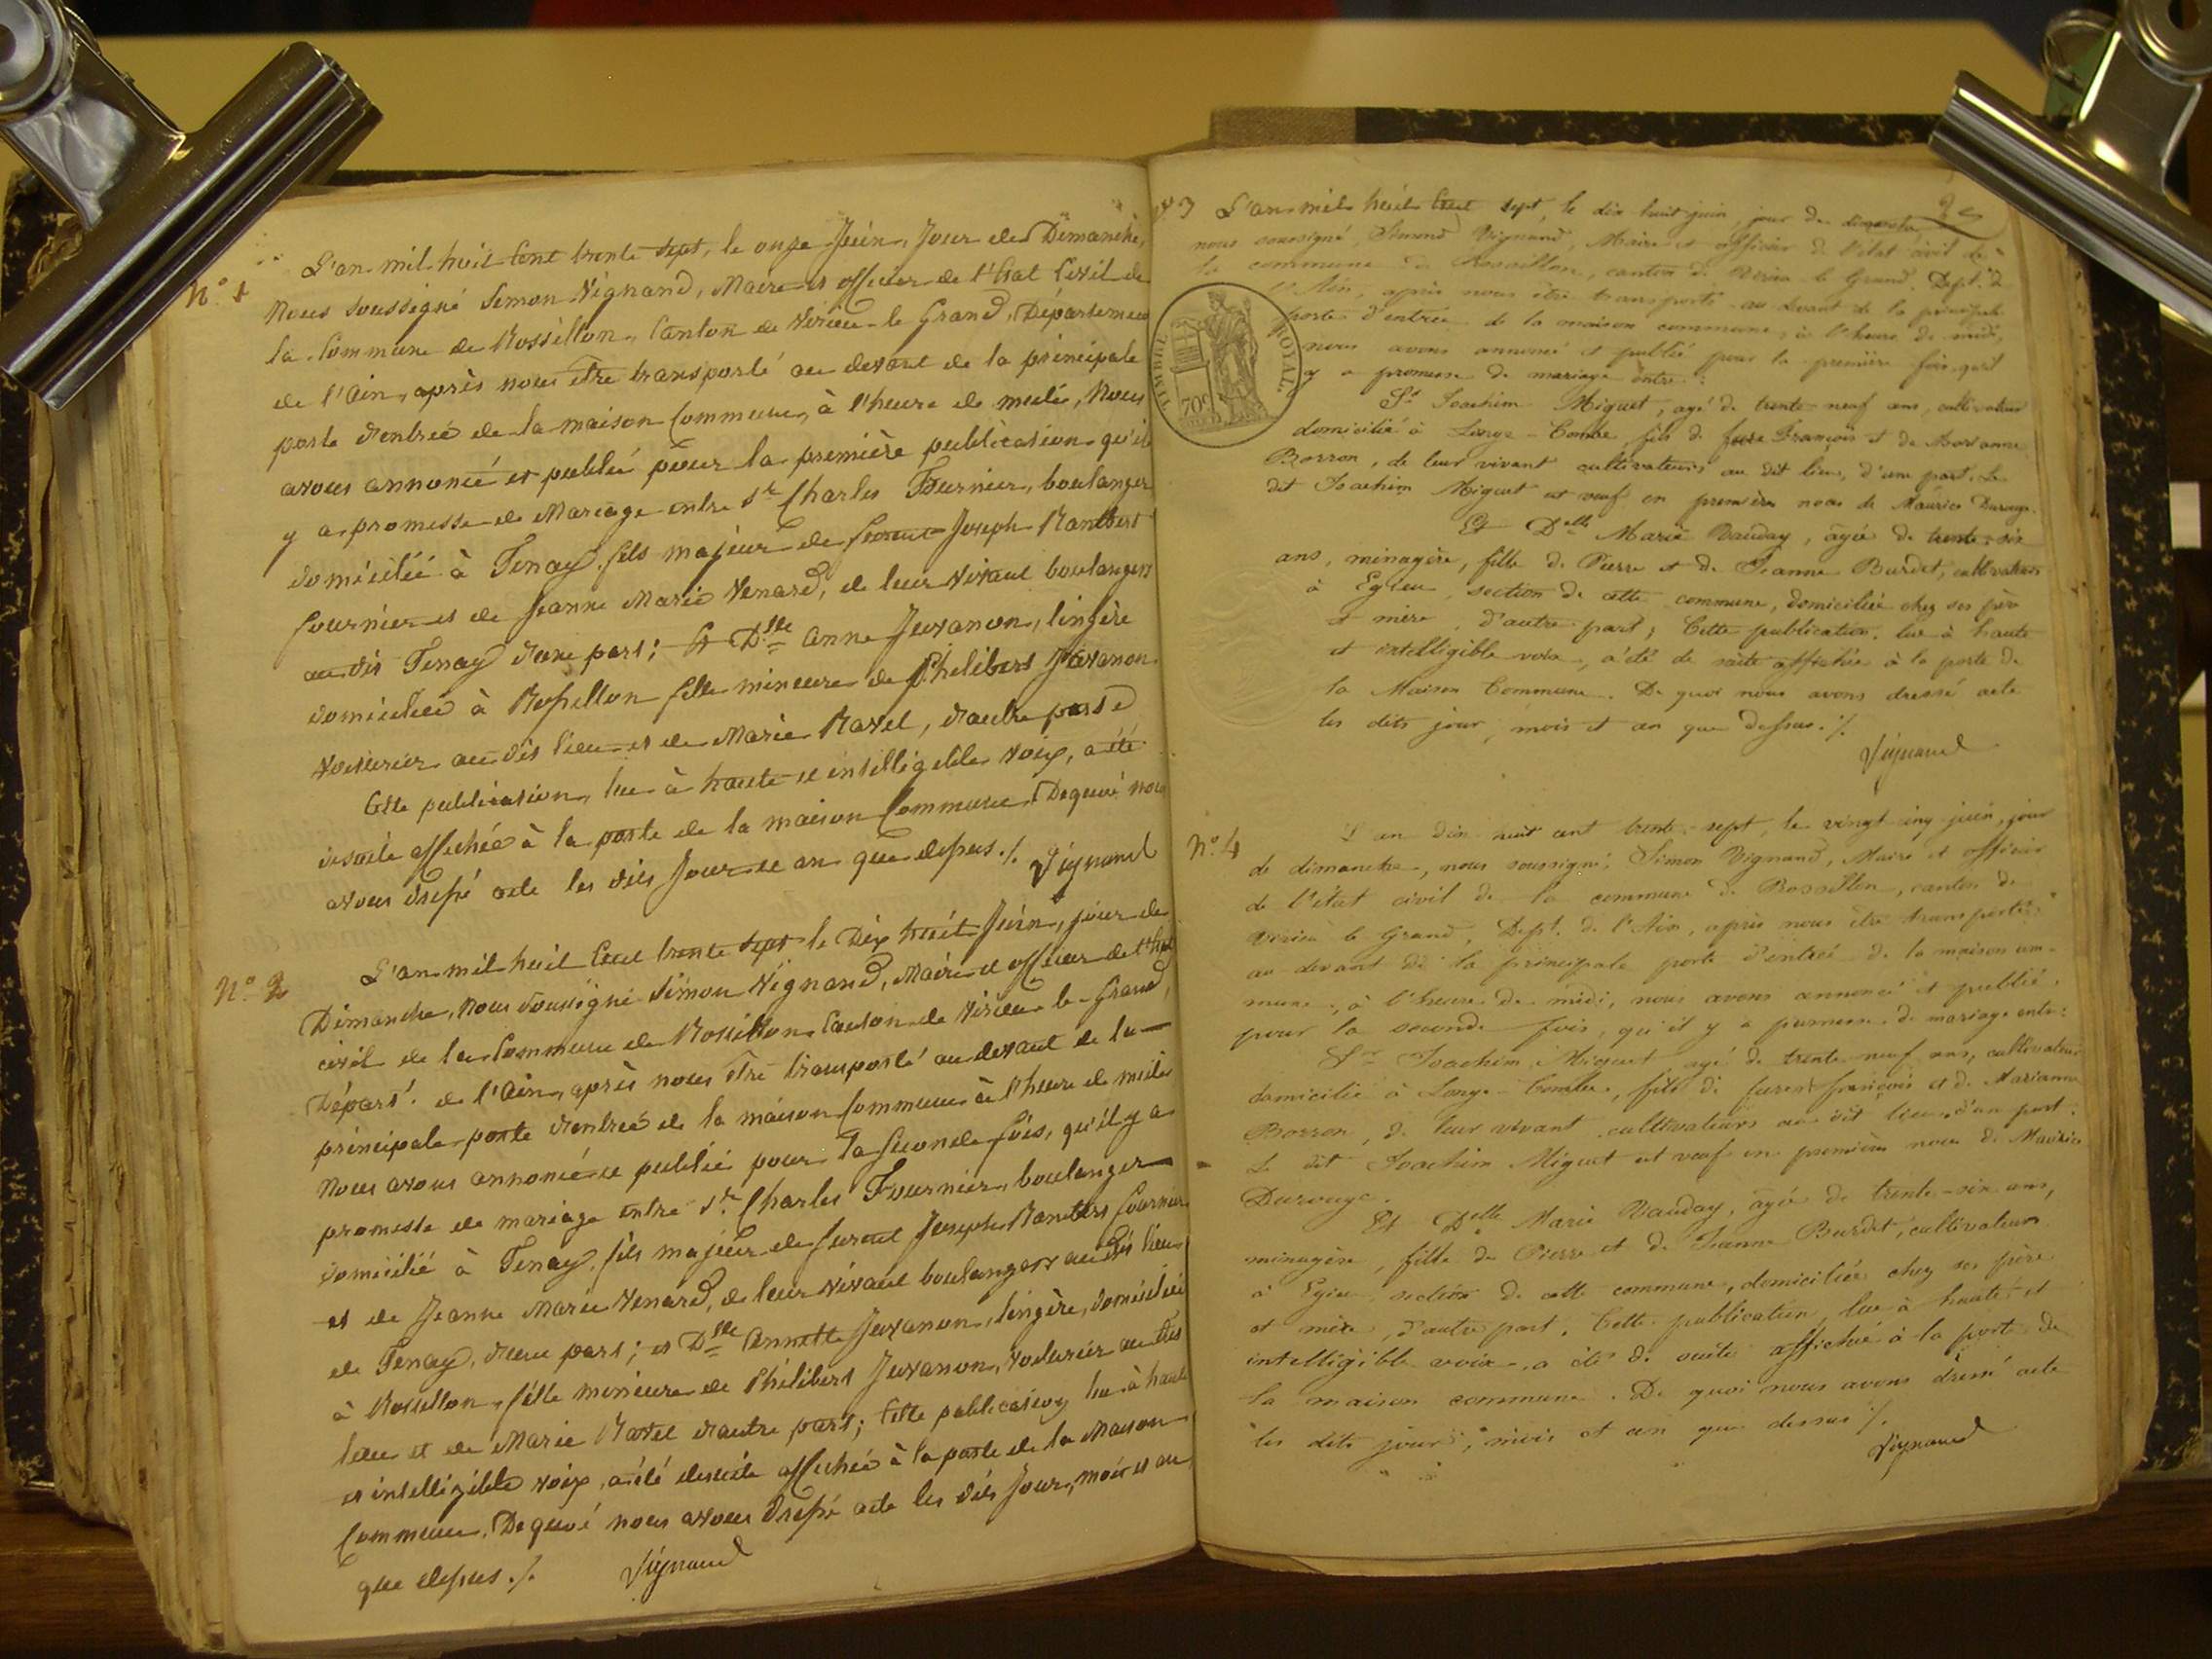 N.° 1
L'an mil huit Cent trente Sept, le onze Juin, Jour de Dimanche,
Nous Soussigné Simon Vignand, Maire et officier de l'Etat Civil de
la Commune de Rossillon, Canton de Virieu-le Grand, Département
de l'Ain, après nous être transporté au devant de la principale
porte d'entrée de la maison Commune, à l'heure de midi, Nous
avons annoncé et publié pour la première publication qu'il
y a promesse de Mariage entre Sr. Charles Fournier, boulanger
domicilié à Tenay, fils majeur de Joseph Rambert
fournier et de Jeanne Marie Venard, de leur vivant boulangers
au dit Tenay d'une part; Et D.lle Anne Juvanon, lingère
domiciliée à Rossillon fille mineure de Philibert Juvanon
voiturier au dit lieu et de Marie Ravel, d'autre part
Cette publication, lue à haute et intelligible voix, a été
desuite affichée à la porte de la maison Commune. De quoi nous
avons dressé acte les dits Jour et an que dessus ./. Vignand
N.° 2
L'an mil huit Cent trente Sept le Dix huit Juin, jour de
Dimanche, Nous Soussigné Simon Vignand, Maire et officier de l'Etat
civil de la Commune de Rossillon Canton de Virieu le Grand,
Départ.t de l'Ain, après nous être transporté au devant de la
principale porte d'entrée de la maison Commune à l'heure de midi
Nous avons annoncé et publié pour la Seconde fois, qu'il y a
promesse de mariage entre Sr. Charles Fournier, boulanger
domicilié à Tenay, fils majeur de Joseph Rambert fournier
et de Jeanne Marie Venard, de leur vivant boulangers au dit lieu
de Tenay, d'une part; et D.lle Annette Juvanon, lingère, domiciliée
à Rossillon, fille mineure de Philibert Juvanon, voiturier au dit
lieu et de Marie Ravel d'autre part; Cette publication lue à haute
et intelligible voix, a été desuite affichée à la porte de la Maison
Commune. De quoi nous avons dressé acte les dits Jour, mois et an
que dessus ./. Vignand
3 L'an mil huit Cent sept, le dix huit juin, jour de dimanche
nous soussigné, Simond Vignand, Maire et officier de l'état civil de
la commune de Rossillon, canton de Virieu le Grand, Dept. de
l'Ain, après nous être transporté au devant de la principale
porte d'entrée de la maison commune, à l'heure de midi,
nous avons annoncé et publié pour la première fois, qu'il
y a promesse de mariage entre :
TIMBRE ROYAL.
70c
Sr Joachim Miguet, agé de trente neuf ans, cultivateur
domicilié à Longe-Combe, fils de François et de
Borron, de leur vivant cultivateurs au dit lieu, d'une part. Le
dit Joachim Miguet est veuf en première noce de Maurice Durouge.
Et Delle Marie Vauday, agée de trente-six
ans, ménagère, fille de Pierre et de Jeanne Burdet, cultivateurs
à Egieu, section de cette commune, domiciliée chez ses père
et mère, d'autre part; Cette publication, lue à haute
et intelligible voix, a été de suite affichée à la porte de
la Maison Commune. De quoi nous avons dressé acte
les dits jour, mois et an que dessus ./.
Vignand
N.° 4
L'an dix huit cent trente-sept, le vingt cinq juin, jour
de dimanche, nous soussigné, Simon Vignand, Maire et officier
de l'état civil de la commune de Rossillon, canton de
Virieu le Grand, Dept. de l'Ain, après nous être transporté
au devant de la principale porte d'entrée de la maison com-
mune, à l'heure de midi, nous avons annoncé et publié,
pour la seconde fois, qu'il y a promesse de mariage entre:
Sr Joachim Miguet agé de trente neuf ans, cultivateur
domicilié à Longe-Combe, fils de françois et de Marianne
Borron, de leur vivant cultivateurs au dit lieu, d'une part.
Le dit Joachim Miguet est veuf en première noce de Maurice
Durouge.
Et Delle Marie Vauday, agée de trente-six ans,
ménagère, fille de Pierre et de Jeanne Burdet, cultivateurs
à Egieu, section de cette commune, domiciliée chez ses père
et mère, d'autre part. Cette publication, lue à haute et
intelligible voix, a été de suite affichée à la porte de
la maison commune. De quoi nous avons dressé acte
les dits jour, mois et an que dessus ./.
Vignand